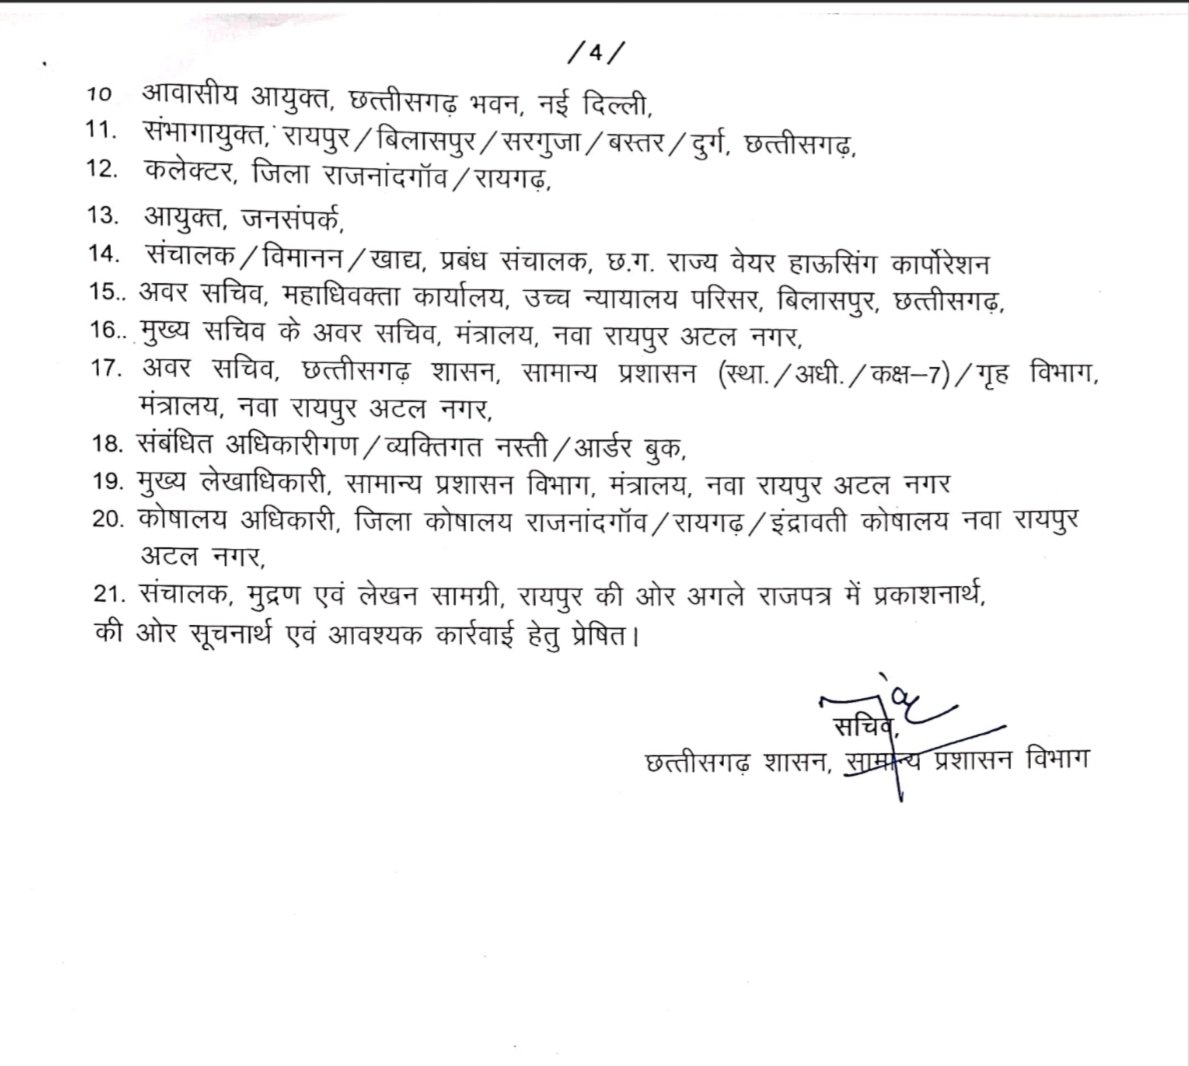 /4/
10 आवासीय आयुक्त, छत्तीसगढ़ भवन, नई दिल्ली,
11. संभागायुक्त, रायपुर/बिलासपुर/सरगुजा/बस्तर/दुर्ग, छत्तीसगढ़,
12. कलेक्टर, जिला राजनांदगॉव/रायगढ़,
13. आयुक्त, जनसंपर्क,
14. संचालक/विमानन/खाद्य, प्रबंध संचालक, छ.ग. राज्य वेयर हाऊसिंग कार्पोरेशन
15.. अवर सचिव, महाधिवक्ता कार्यालय, उच्च न्यायालय परिसर, बिलासपुर, छत्तीसगढ़,
16.. मुख्य सचिव के अवर सचिव, मंत्रालय, नवा रायपुर अटल नगर,
17. अवर सचिव, छत्तीसगढ़ शासन, सामान्य प्रशासन (स्था./अधी./कक्ष–7)/गृह विभाग,
मंत्रालय, नवा रायपुर अटल नगर,
18. संबंधित अधिकारीगण/व्यक्तिगत नस्ती/आर्डर बुक,
19. मुख्य लेखाधिकारी, सामान्य प्रशासन विभाग, मंत्रालय, नवा रायपुर अटल नगर
20. कोषालय अधिकारी, जिला कोषालय राजनांदगॉव/रायगढ़/इंद्रावती कोषालय नवा रायपुर
अटल नगर,
21. संचालक, मुद्रण एवं लेखन सामग्री, रायपुर की ओर अगले राजपत्र में प्रकाशनार्थ,
की ओर सूचनार्थ एवं आवश्यक कार्रवाई हेतु प्रेषित।
सचिव,
छत्तीसगढ़ शासन, सामान्य प्रशासन विभाग